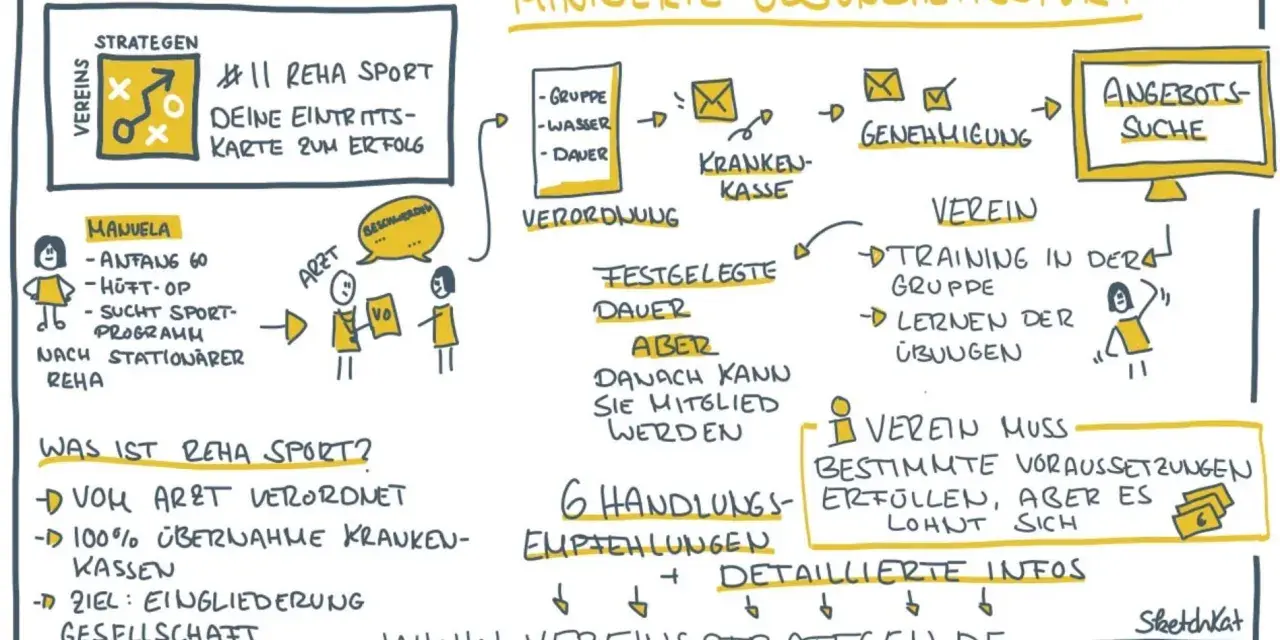 STRATEGEN
VEREINS
#11 REHA SPORT
DEINE EINTRITTS-
KARTE ZUM ERFOLG
MANUELA
- ANFANG 60
- HÜFT-OP
- SUCHT SPORT-
PROGRAMM
NACH STATIONÄRER
REHA
ARZT
BESCHWERDEN
... ...
VO
- GRUPPE
- WASSER
- DAUER
VERORDNUNG
KRANKEN-
KASSE
GENEHMIGUNG
ANGEBOTS-
SUCHE
VEREIN
TRAINING IN DER
GRUPPE
LERNEN DER
ÜBUNGEN
FESTGELEGTE
DAUER
ABER
DANACH KANN
SIE MITGLIED
WERDEN
WAS IST REHA SPORT?
VOM ARZT VERORDNET
100% ÜBERNAHME KRANKEN-
KASSEN
ZIEL: EINGLIEDERUNG
GESELLSCHAFT
i VEREIN MUSS
BESTIMMTE VORAUSSETZUNGEN
ERFÜLLEN, ABER ES
LOHNT SICH
6 HANDLUNGS-
EMPFEHLUNGEN
+ DETAILLIERTE INFOS
SketchKat